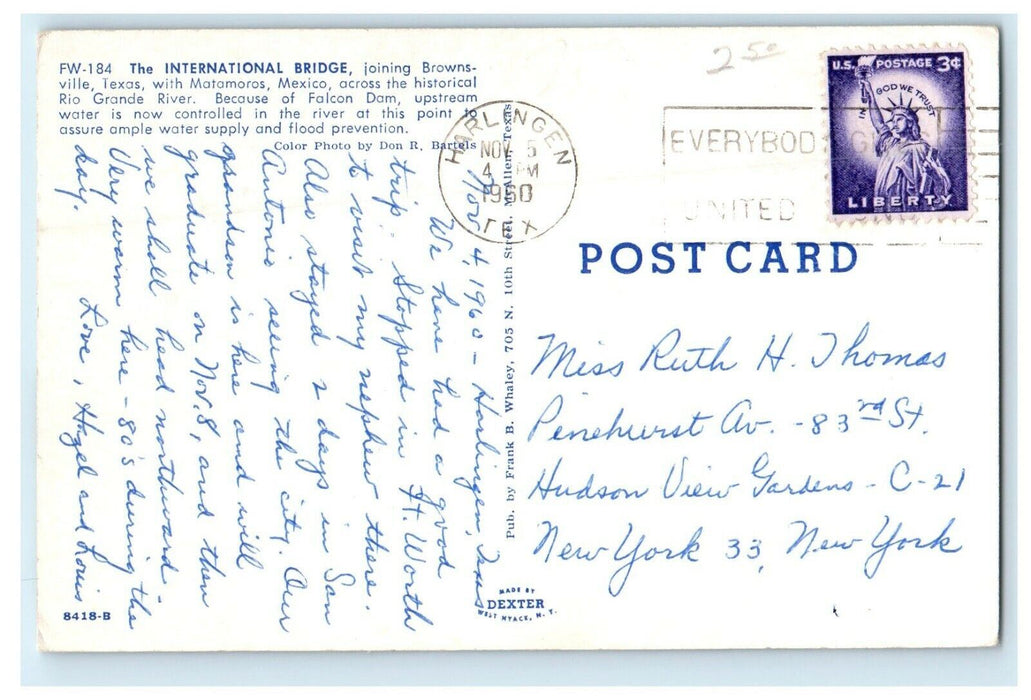 FW-184 The INTERNATIONAL BRIDGE, joining Browns-
ville, Texas, with Matamoros, Mexico, across the historical
Rio Grande River. Because of Falcon Dam, upstream
water is now controlled in the river at this point to
assure ample water supply and flood prevention.
Color Photo by Don R. Bartels
Nov 4, 1960 - Harlingen, Texas
We have had a good
trip. Stopped in Ft. Worth
to visit my nephew there.
Also stayed 2 days in San
Antonio seeing the city. Our
grandson is here and will
graduate on Nov. 8, and then
we shall head northward.
Very warm here - 80's during the
day.
Love, Hazel and Louis
8418-B
Pub. by Frank B. Whaley, 705 N. 10th Street, McAllen, Texas
MADE BY
DEXTER
WEST NYACK, N. Y.
HARLINGEN
NOV 5
4 PM
1960
TEX
2 50
EVERYBODY
UNITED
U.S. POSTAGE 3¢
IN GOD WE TRUST
LIBERTY
POST CARD
Miss Ruth H. Thomas
Pinehurst Av. - 83rd St.
Hudson View Gardens - C-21
New York 33, New York